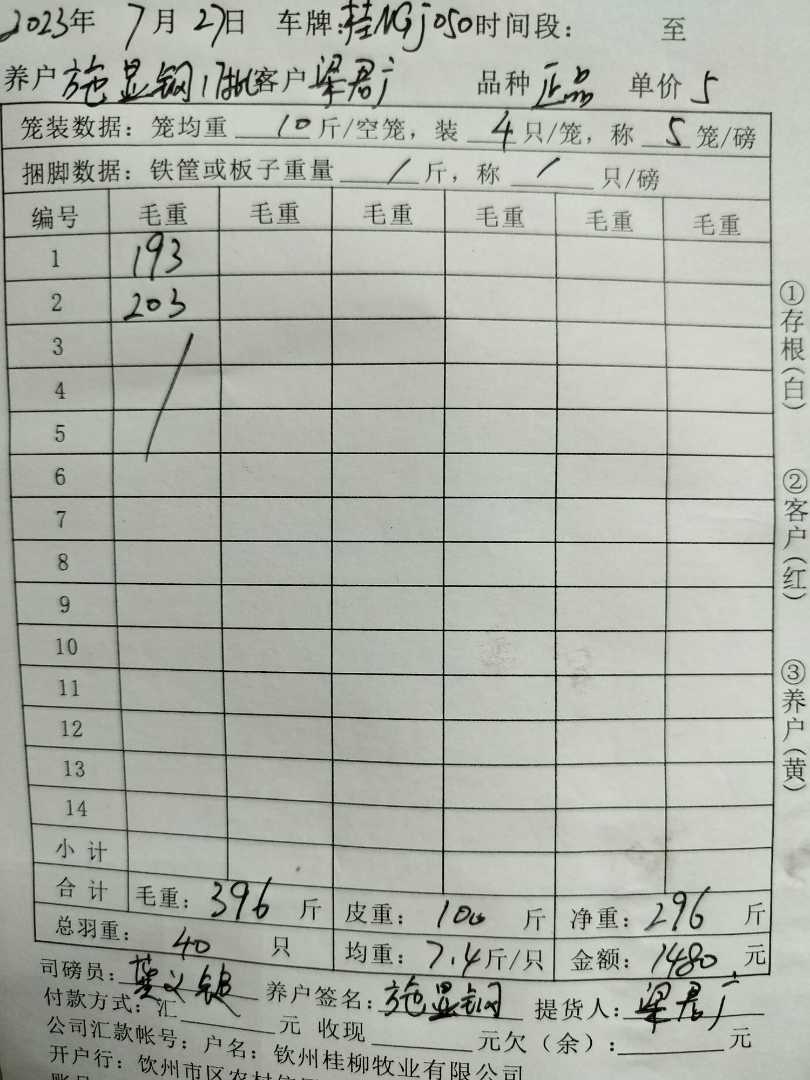 2023年 7月27日 车牌:桂NGJ050时间段: 至
养户施显钢17批客户梁君广 品种 正品 单价 5
笼装数据:笼均重 10 斤/空笼,装 4 只/笼,称 5 笼/磅
捆脚数据:铁筐或板子重量 / 斤,称 / 只/磅
编号 毛重 毛重 毛重 毛重 毛重 毛重
1 193
2 203
3
4
5
6
7
8
9
10
11
12
13
14
小计
合计 毛重:396 斤 皮重:100 斤 净重:296 斤
总羽重: 40 只 均重:7.4斤/只 金额:1480元
司磅员: 养户签名:施显钢 提货人:梁君广
付款方式:汇 元 收现 元欠(余): 元
公司汇款帐号:户名:钦州桂柳牧业有限公司
开户行:钦州市区农村信用
①存根(白)
②客户(红)
③养户(黄)